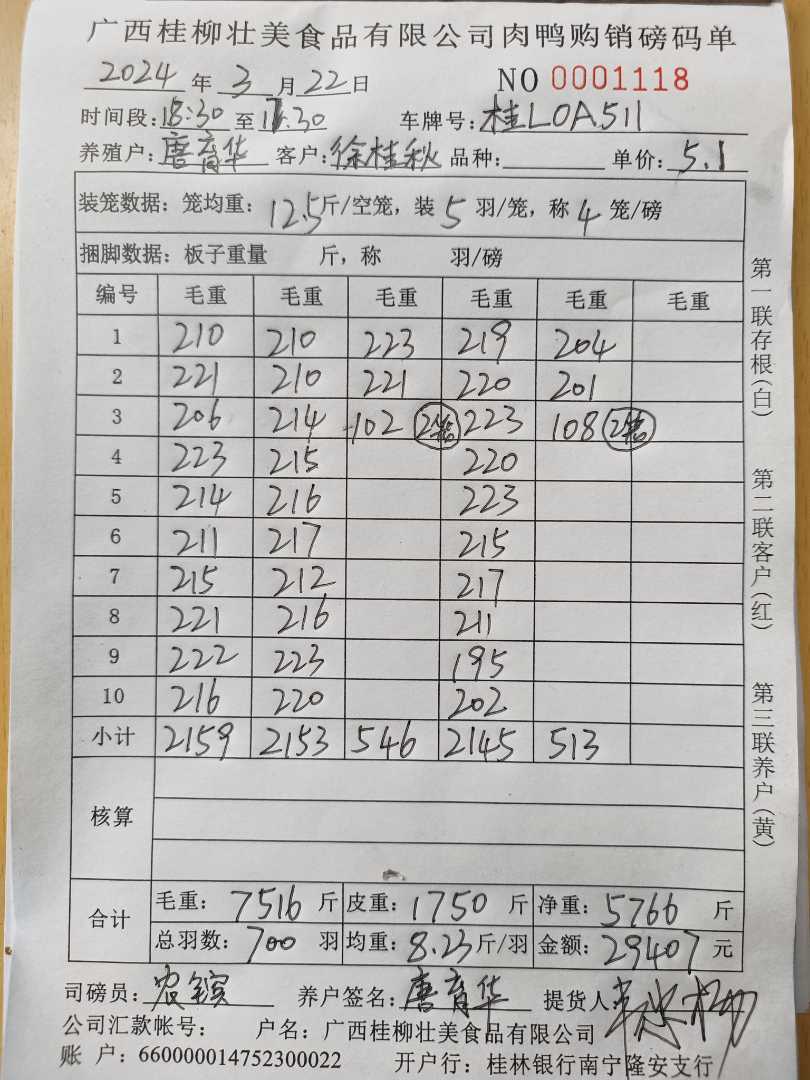 广西桂柳壮美食品有限公司肉鸭购销磅码单
2024 年 3 月 22 日 NO 0001118
时间段: 15:30 至 17:30 车牌号: 桂L0A511
养殖户: 唐育华 客户: 徐桂秋 品种: 单价: 5.1
装笼数据: 笼均重: 12.5 斤/空笼, 装 5 羽/笼, 称 4 笼/磅
捆脚数据: 板子重量 斤, 称 羽/磅
编号 毛重 毛重 毛重 毛重 毛重 毛重
1 210 210 223 219 204
2 221 210 221 220 201
3 206 214 102 2笼 223 108 2笼
4 223 215 220
5 214 216 223
6 211 217 215
7 215 212 217
8 221 216 211
9 222 223 195
10 216 220 202
小计 2159 2153 546 2145 513
核算
合计 毛重: 7516 斤 皮重: 1750 斤 净重: 5766 斤
总羽数: 700 羽 均重: 8.23 斤/羽 金额: 29407 元
司磅员: 养户签名: 唐育华 提货人:
公司汇款帐号: 户名: 广西桂柳壮美食品有限公司
账 户: 660000014752300022 开户行: 桂林银行南宁隆安支行
第一联存根(白)
第二联客户(红)
第三联养户(黄)